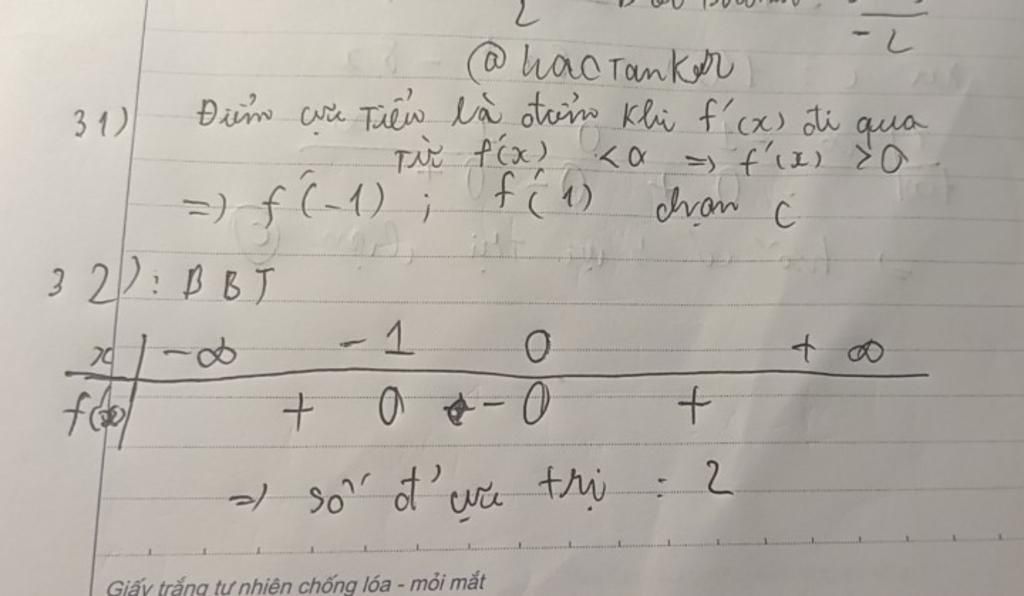 2
- 2
@hacTanker
31) Điểm cực Tiểu là điểm khi f'(x) đi qua
Từ f'(x) < 0 => f'(x) > 0
=> f'(-1) ; f'(1) chọn C
32): BBT
x -∞ -1 0 +∞
f(x) + 0 - 0 +
=> số đ' cực trị : 2
Giấy trắng tự nhiên chống lóa - mỏi mắt